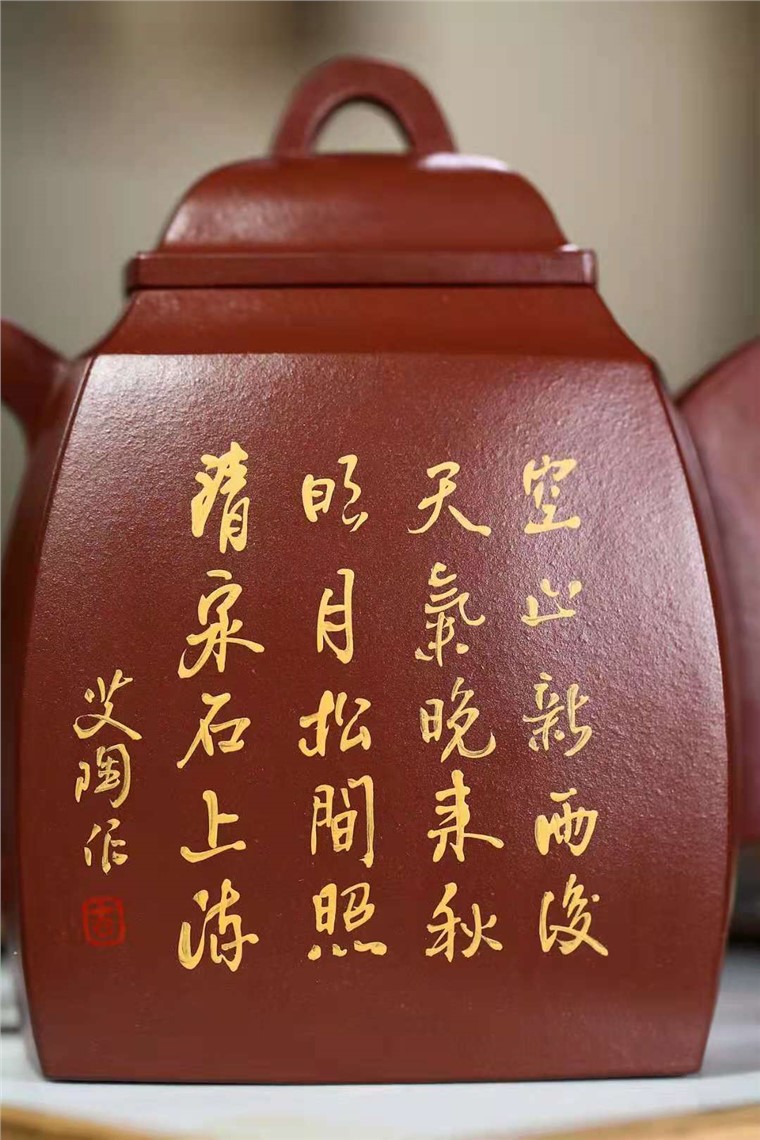 空山新雨後
天氣晚来秋
明月松間照
清泉石上流
艾陶作